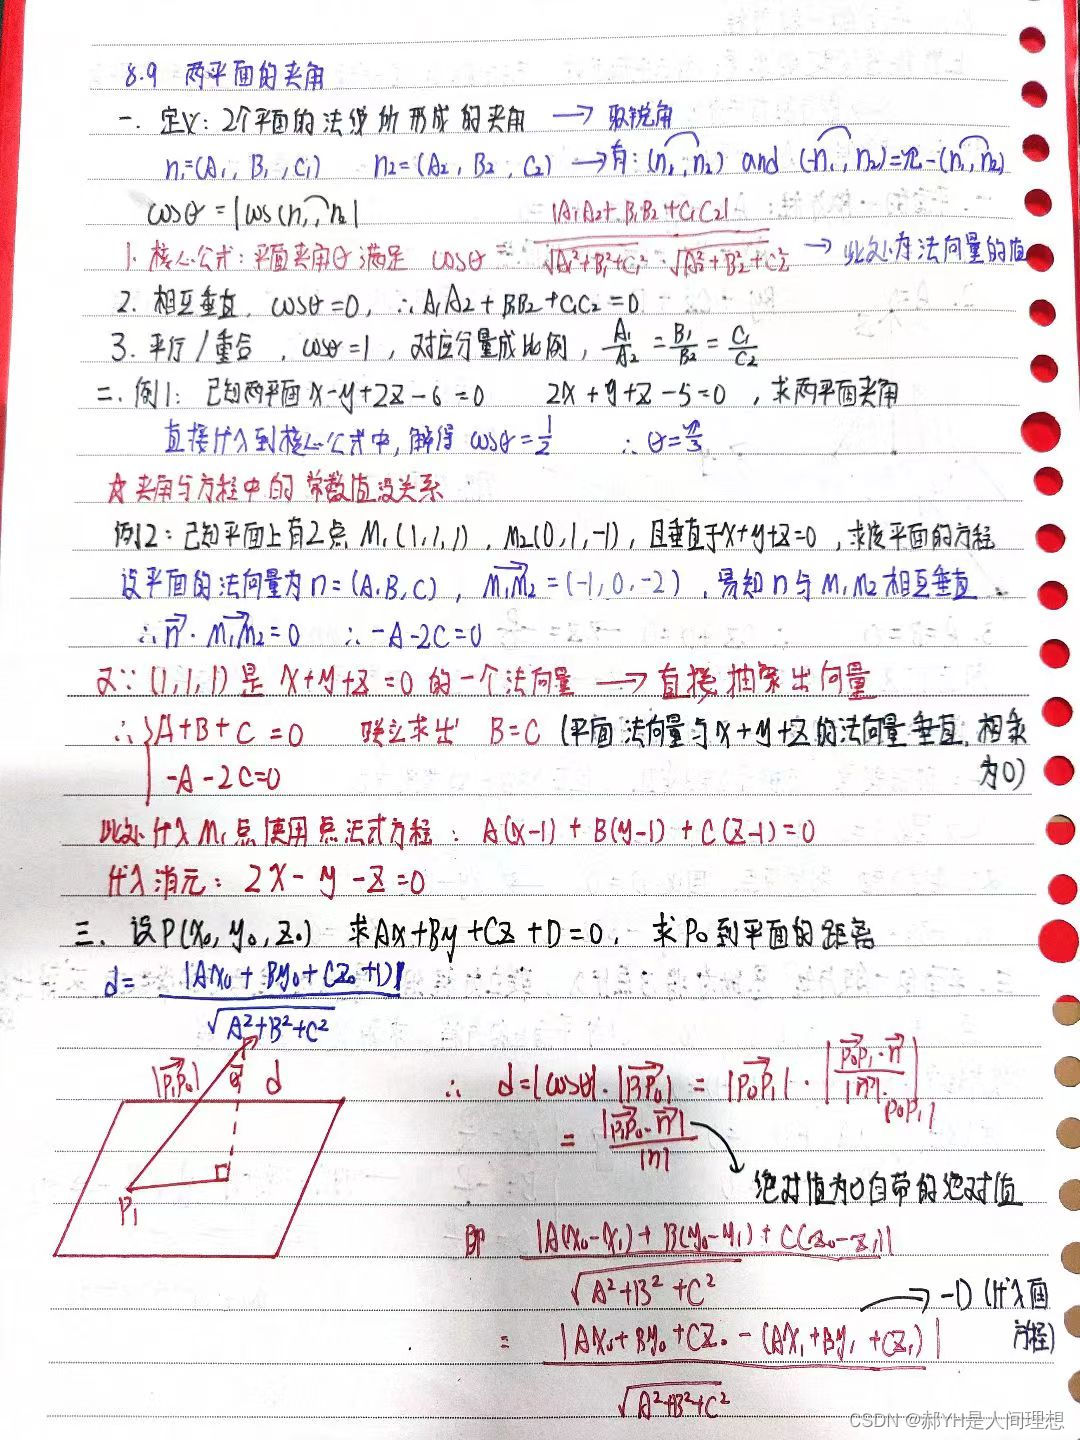 8.9 两平面的夹角
一. 定义: 2个平面的法线所形成的夹角 → 取锐角
n₁=(A₁, B₁, C₁) n₂=(A₂, B₂, C₂) → 有: (n₁, n₂) and (-n₁, n₂)=π-(n₁, n₂)
cosθ = |cos(n₁, n₂|
1. 核心公式: 平面夹角θ满足 cosθ = |A₁A₂+B₁B₂+C₁C₂| / √A₁²+B₁²+C₁² · √A₂²+B₂²+C₂² → 此处存法向量的值
2. 相互垂直, cosθ=0, ∴A₁A₂+B₁B₂+C₁C₂=0
3. 平行/重合, cosθ=1, 对应分量成比例, A₁/A₂ = B₁/B₂ = C₁/C₂
二. 例1: 已知两平面 x-y+2z-6=0 2x+y+z-5=0, 求两平面夹角
直接代入到核心公式中, 解得 cosθ=1/2 ∴θ=π/3
☆夹角与方程中的常数值没关系
例2: 已知平面上有2点 M₁(1,1,1), M₂(0,1,-1), 且垂直于x+y+z=0, 求该平面的方程
设平面的法向量为n=(A,B,C), M₁M₂=(-1,0,-2), 易知n与M₁M₂相互垂直
∴n·M₁M₂=0 ∴-A-2C=0
又∵(1,1,1)是 x+y+z=0 的一个法向量 → 直接抽象出向量
∴{A+B+C=0 联立求出 B=C (平面法向量与x+y+z的法向量垂直, 相乘
-A-2C=0 为0)
此处代入M₁点使用点法式方程: A(x-1)+B(y-1)+C(z-1)=0
代入消元: 2x-y-z=0
三. 设P(x₀, y₀, z₀) 求Ax+By+Cz+D=0, 求P₀到平面的距离
d= |Ax₀+By₀+Cz₀+D| / √A²+B²+C²
|P₁P₀| d
P₁
∴ d=|cosθ|·|P₁P₀| = |P₀P₁|·|P₀P₁·n / |n|·P₀P₁|
= |P₁P₀·n| / |n|
绝对值为0自带的绝对值
即 |A(x₀-x₁)+B(y₀-y₁)+C(z₀-z₁)| / √A²+B²+C²
→ -D (代入面方程)
= |Ax₀+By₀+Cz₀-(Ax₁+By₁+Cz₁)| / √A²+B²+C²
CSDN @郝YH是人间理想